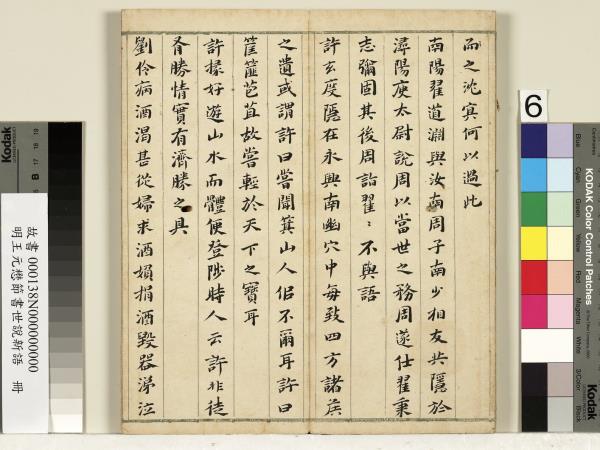 而之沈冥何以過此
南陽翟道淵與汝南周子南少相友共隱於
潯陽庾太尉說周以當世之務周遂仕翟秉
志彌固其後周詣翟〻不與語
許玄度隱在永興南幽穴中每致四方諸侯
之遺或謂許曰嘗聞箕山人侣不爾耳許曰
筐篚苞苴故當輕於天下之寶耳
許掾好遊山水而體便登陟時人云許非徒
有勝情實有濟勝之具
劉伶病酒渴甚從婦求酒婦捐酒毀器涕泣
故書 000138N000000000
明王元懋節書世說新語 冊
6
KODAK Color Control Patches
Blue
Cyan
Green
Yellow
Red
Magenta
White
3/Color
Black
Kodak
Kodak
B 17 18 19